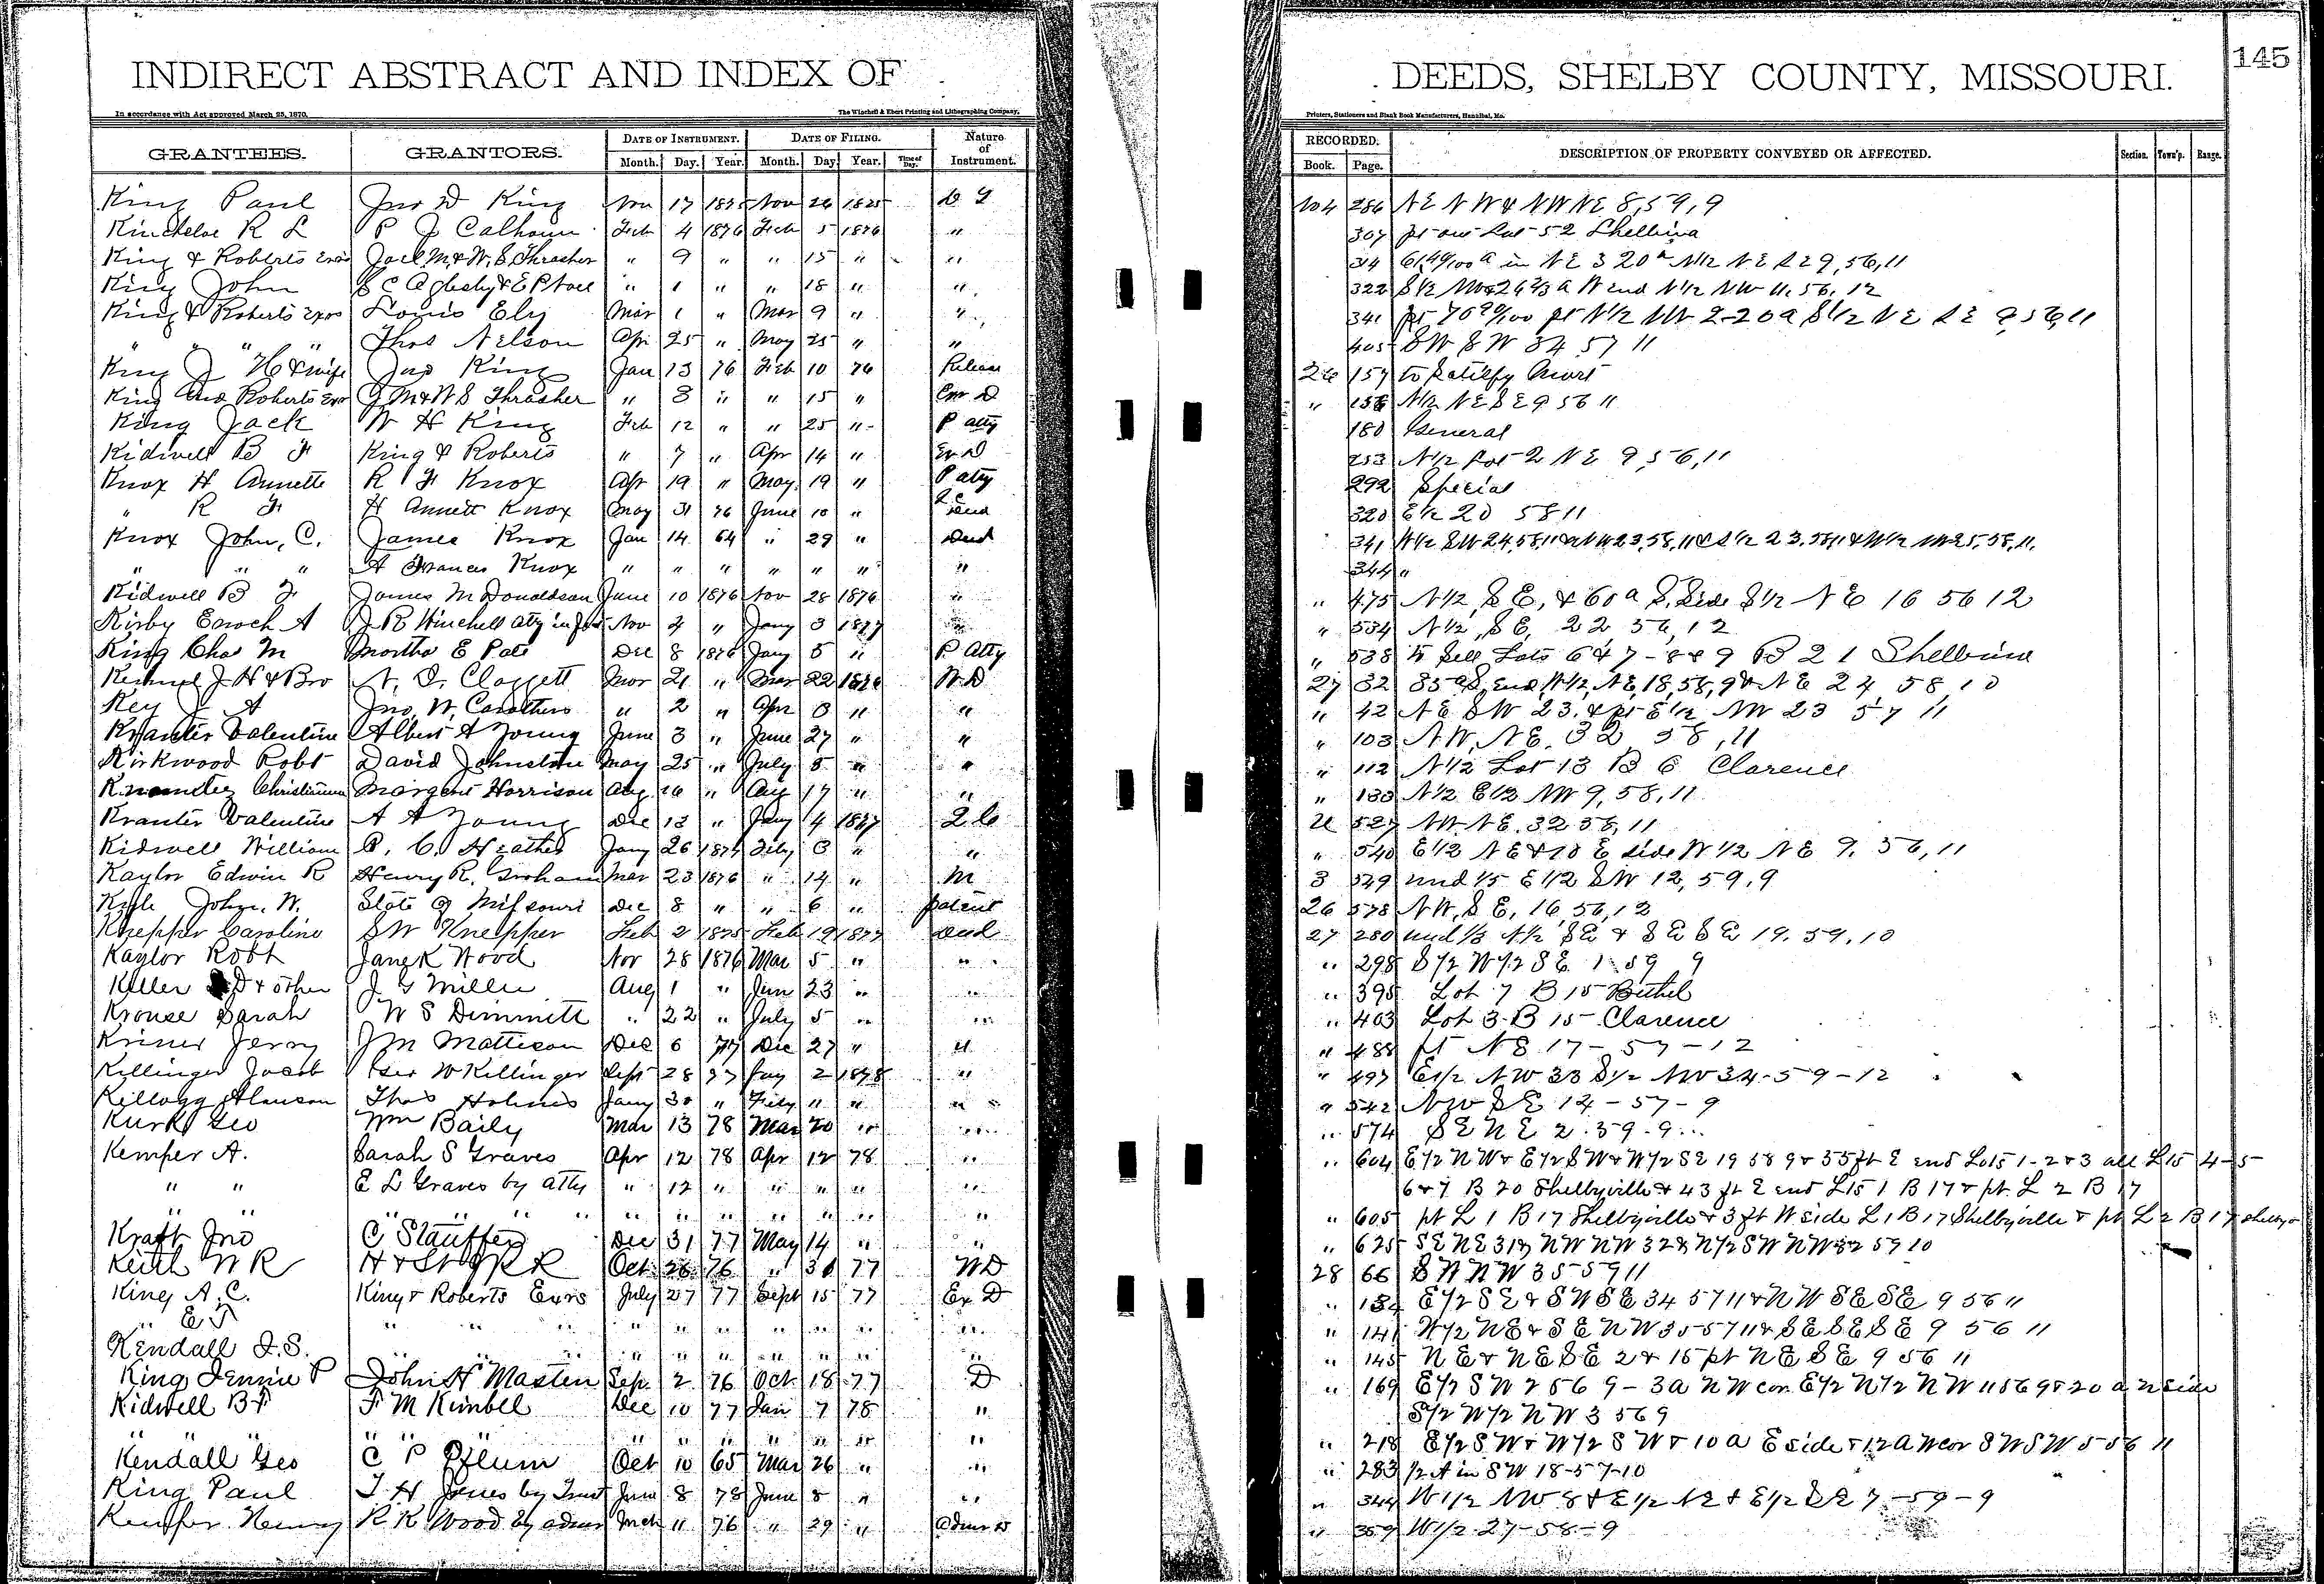 INDIRECT ABSTRACT AND INDEX OF DEEDS, SHELBY COUNTY, MISSOURI. 145
In accordance with Act approved March 25, 1870. The Winchell & Ebert Printing and Lithographing Company, Printers, Stationers and Blank Book Manufacturers, Hannibal, Mo.
GRANTEES. GRANTORS. DATE OF INSTRUMENT. DATE OF FILING. Nature of Instrument. RECORDED. DESCRIPTION OF PROPERTY CONVEYED OR AFFECTED. Section. Town'p. Range.
Month. Day. Year. Month. Day. Year. Time of Day. Book. Page.
King Paul Jno D King Nov 17 1875 Nov 26 1875 286 NE NW & NW NE 8, 59, 9
Kincheloe R L P J Calhoun Feb 4 1876 Feb 5 1876 " 307 pt out Lot 52 Shelbina
King & Roberts Exrs Joel M. & W. S. Thrasher " 9 " " 15 " " 314
King John " 1 " " 18 " " 322
King & Roberts Exrs Louis Ely Mar 1 " Mar 9 " " 341
" " " " Thos Nelson Apr 25 " May 25 " " 405 SW SW 34 57 11
King J H & wife Jas King Jan 13 76 Feb 10 76 Release 26 157 to Satisfy Mort
King and Roberts Exr J M & W S Thrasher " 3 " " 15 " " 158 N1/2 NE SE 9 56 11
King Jack W H King Feb 12 " " 25 " P atty 180 General
Kidwell B F King & Roberts " 7 " Apr 14 " Ex D 253 N1/2 Lot 2 NE 9, 56, 11
Knox H Annette R F Knox Apr 19 " May 19 " P atty 292 Special
" R F H Annett Knox May 31 76 June 10 " 320 E1/2 20 58 11
Knox John, C. James Knox Jan 14 64 " 29 " Deed 341
" " " A Frances Knox " " " " " " " 344 "
Kidwell B F James M Donaldson June 10 1876 Nov 28 1876 " " 475 N1/2 SE, & 60 a S. Side S1/2 NE 16 56 12
Kirby Enoch A J R Winchell aty in fact Nov 4 " Jany 3 1877 " " 534 N1/2, SE, 22 56, 12
King Chas M Martha E Pate Dec 8 1876 Jany 5 " P Atty " 538 to Sell Lots 6 & 7 - 8 & 9 B 21 Shelbina
J H & Bro N. D. Claggett Mar 21 " Mar 22 1876 W D 27 32 85 a S, end, W1/2, NE, 18, 58, 9 & NE 24 58, 10
Key J A Jno, W, Carothers " 2 " Apr 3 " " " 42 NE SW 23. & pt E1/2 NW 23 57 11
Kranter Valentine Albert A Young June 3 " June 27 " " " 103 NW, NE, 32, 58, 11
Kirkwood Robt David Johnston May 25 " July 5 " " " 112 N1/2 Lot 13 B 6 Clarence
Margaret Harrison Aug 16 " Aug 17 " " " 133 N1/2 E1/2 NW 9, 58, 11
Kranter Valentine A A Young Dec 13 " Jany 4 1877 2 C 527 NW NE. 32 58, 11
Kidwell William Jany 26 Feby 3 " " " 540 E1/2 NE & 10 E side W1/2 NE 9, 56, 11
Kaylor Edwin R Henry R. Graham Mar 23 1876 " 14 " M 3 549 und 1/5 E1/2 SW 12, 59, 9
Kyle John. W. State of Missouri Dec 8 " " 6 " patent 26 578 NW, SE, 16, 56, 12
Knepper Caroline S W Knepper Feb 2 1875 Feb 19 1877 Deed 27 280 und 1/3 N1/2 SE & SE SE 19. 59. 10
Kaylor Robt Jane K Wood Nov 28 1876 Mar 5 " " " 298 S1/2 W1/2 SE 1 59 9
Keller D & other J G Miller Aug 1 " Jun 23 " " " 395 Lot 7 B 15 Bethel
Krouse Sarah W S Dimmitt " 22 " July 5 " " " 403 Lot 3 B 15 Clarence
Kriner Jerry J M Mattison Dec 6 77 Dec 27 " " " 488 pt NE 17-57-12
Killinger Jacob Geo W Killinger Sept 28 77 Jay 2 1878 " " 497 E1/2 NW 33 S1/2 NW 34-59-12
Kellogg Alanson Thos Holmes Jany 30 " Feby 11 " " " 542 NW SE 14-57-9
Kurk Geo Wm Baily Mar 13 78 Mar 20 " " " 574 SE NE 2. 59. 9
Kemper A. Sarah S Graves Apr 12 78 Apr 12 78 " " 604 E1/2 NW & E1/2 SW & W1/2 SE 19 58 9 & 55 ft E end Lots 1-2 & 3 all L15 4-5-
" " E L Graves by atty " 12 " " " " " 6 & 7 B 20 Shelbyville & 43 ft E end L15 1 B 17 & pt L 2 B 17
" " " " " " " " " " " " " " 605 pt L 1 B 17 Shelbyville & 3 ft W side L 1 B 17 Shelbyville & pt L 2 B 17
Kraft Jno C Stauffer Dec 31 77 May 14 " " " 625 SE NE 31 & NW NW 32 & N1/2 SW NW 32 59 10
Keith W R H & St J R R Oct 26 76 " 31 77 W D 28 66 SW NW 35 59 11
King A. C. King & Roberts Exrs July 27 77 Sept 15 77 Ex D " E1/2 SE & SW SE 34 57 11 & NW SE SE 9 56 11
" " " " " " " " " " " " 141 W1/2 NE & SE NW 35 57 11 & SE SE SE 9 56 11
Kendall J. S. " " " " " " " " " " " 145 NE & NE SE 2 & 15 pt NE SE 9 56 11
King Jennie P John H Masten Sep 2 76 Oct 18 77 D " 169 E1/2 SW 2 56 9 - 3 a NW cor E1/2 N1/2 NW 11 56 9 & 20 a N side
Kidwell B F F M Kimbel Dec 10 77 Jan 7 78 " S1/2 W1/2 NW 3 56 9
" " " " " " " " " " " " 218 E1/2 SW & W1/2 SW & 10 a E side & 12 a W cor SW SW 5 56 11
Kendall Geo C P Pflum Oct 10 65 Mar 26 " " " 283 1/2 A in SW 18-57-10
King Paul T H Jones by Trust June 8 78 June 8 " " " 344 W1/2 NW 8 & E1/2 NE & E1/2 SE 7-59-9
Kemper Henry R K Wood by admr Mch 11 76 " 29 " Admr D " 359 W1/2 27-58-9